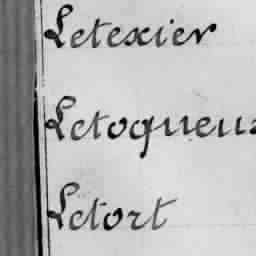 Letexier
Letoqueux
Letort